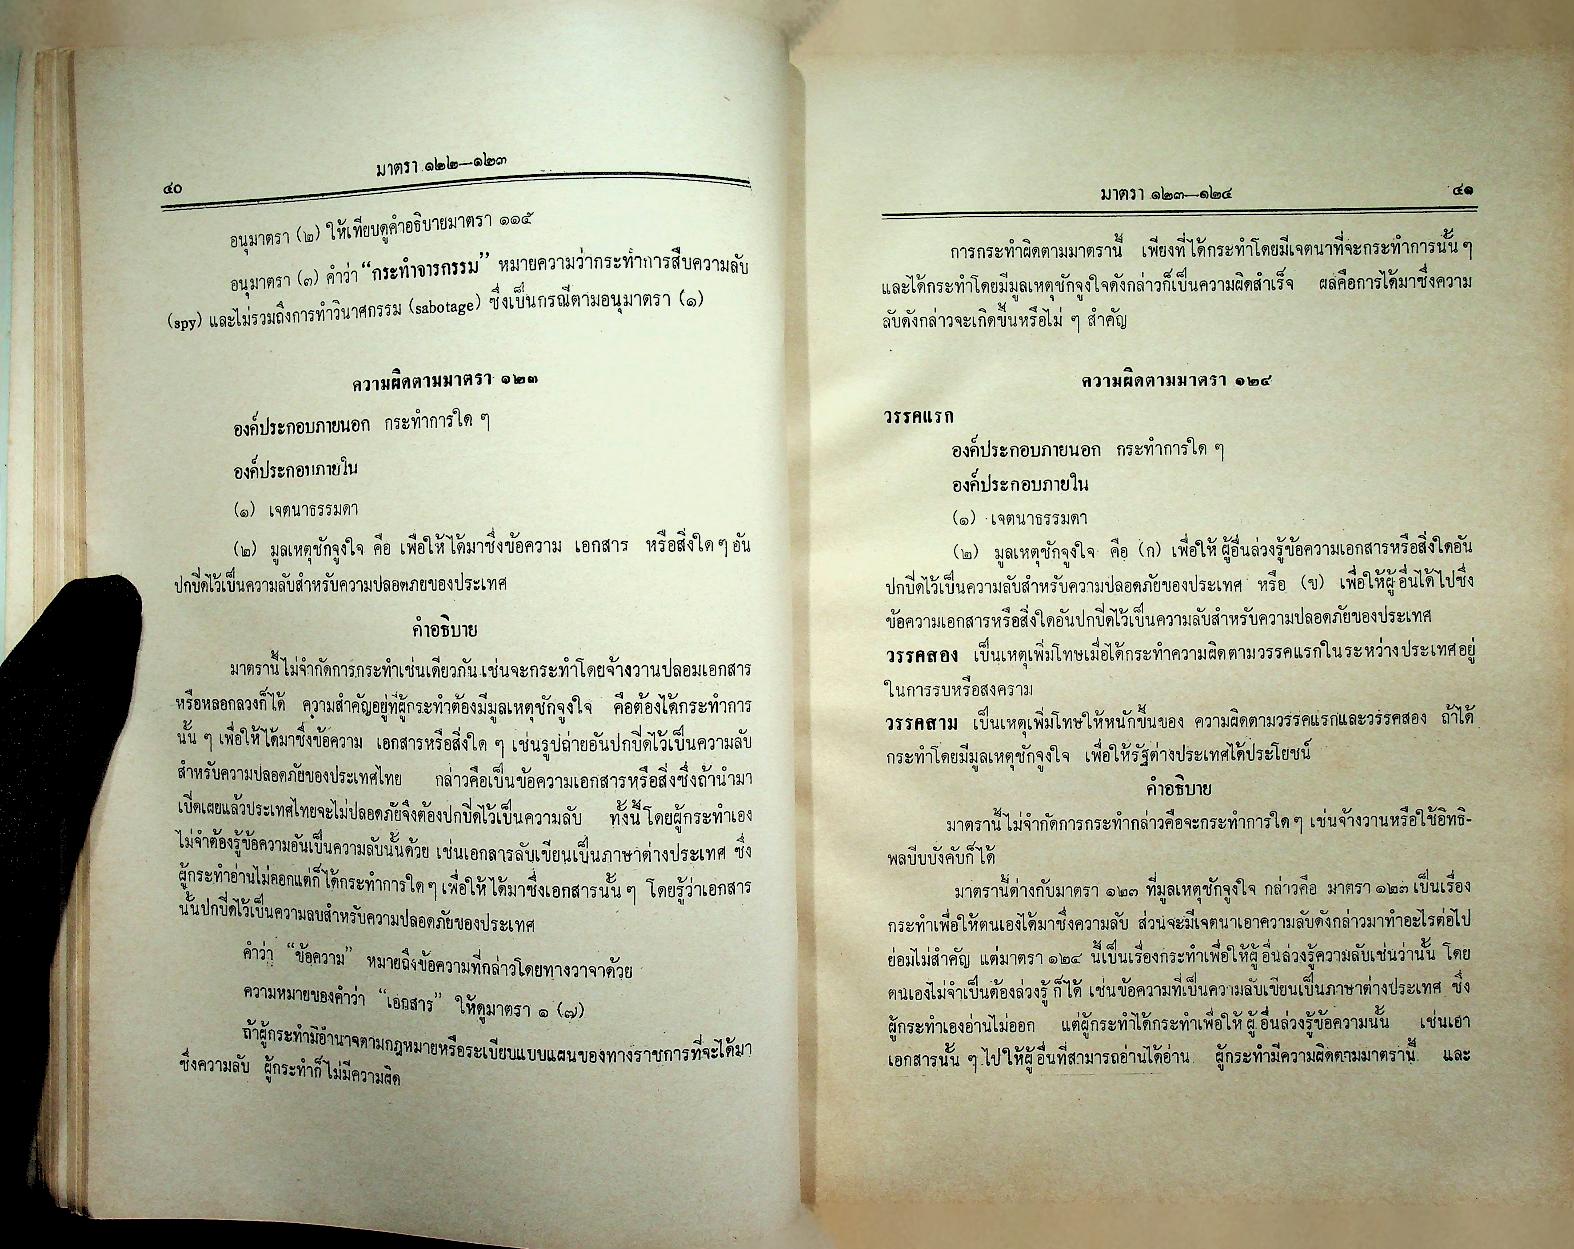 ๔๐
มาตรา ๑๒๒—๑๒๓
อนุมาตรา (๒) ให้เทียบดูคำอธิบายมาตรา ๑๑๕
อนุมาตรา (๓) คำว่า “กระทำจารกรรม” หมายความว่ากระทำการสืบความลับ
(spy) และไม่รวมถึงการทำวินาศกรรม (sabotage) ซึ่งเป็นกรณีตามอนุมาตรา (๑)
ความผิดตามมาตรา ๑๒๓
องค์ประกอบภายนอก กระทำการใด ๆ
องค์ประกอบภายใน
(๑) เจตนาธรรมดา
(๒) มูลเหตุชักจูงใจ คือ เพื่อให้ได้มาซึ่งข้อความ เอกสาร หรือสิ่งใด ๆ อัน
ปกปิดไว้เป็นความลับสำหรับความปลอดภัยของประเทศ
คำอธิบาย
มาตรานี้ไม่จำกัดการกระทำเช่นเดียวกัน เช่นจะกระทำโดยจ้างวานปลอมเอกสาร
หรือหลอกลวงก็ได้ ความสำคัญอยู่ที่ผู้กระทำต้องมีมูลเหตุชักจูงใจ คือต้องได้กระทำการ
นั้น ๆ เพื่อให้ได้มาซึ่งข้อความ เอกสารหรือสิ่งใด ๆ เช่นรูปถ่ายอันปกปิดไว้เป็นความลับ
สำหรับความปลอดภัยของประเทศไทย กล่าวคือเป็นข้อความเอกสารหรือสิ่งซึ่งถ้านำมา
เปิดเผยแล้วประเทศไทยจะไม่ปลอดภัยจึงต้องปกปิดไว้เป็นความลับ ทั้งนี้โดยผู้กระทำเอง
ไม่จำต้องรู้ข้อความอันเป็นความลับนั้นด้วย เช่นเอกสารลับเขียนเป็นภาษาต่างประเทศ ซึ่ง
ผู้กระทำอ่านไม่ออกแต่ก็ได้กระทำการใด ๆ เพื่อให้ได้มาซึ่งเอกสารนั้น ๆ โดยรู้ว่าเอกสาร
นั้นปกปิดไว้เป็นความลับสำหรับความปลอดภัยของประเทศ
คำว่า “ข้อความ” หมายถึงข้อความที่กล่าวโดยทางวาจาด้วย
ความหมายของคำว่า “เอกสาร” ให้ดูมาตรา ๑ (๗)
ถ้าผู้กระทำมีอำนาจตามกฎหมายหรือระเบียบแบบแผนของทางราชการที่จะได้มา
ซึ่งความลับ ผู้กระทำก็ไม่มีความผิด
มาตรา ๑๒๓—๑๒๔
๔๑
การกระทำผิดตามมาตรานี้ เพียงที่ได้กระทำโดยมีเจตนาที่จะกระทำการนั้น ๆ
และได้กระทำโดยมีมูลเหตุชักจูงใจดังกล่าวก็เป็นความผิดสำเร็จ ผลคือการได้มาซึ่งความ
ลับดังกล่าวจะเกิดขึ้นหรือไม่ ๆ สำคัญ
ความผิดตามมาตรา ๑๒๔
วรรคแรก
องค์ประกอบภายนอก กระทำการใด ๆ
องค์ประกอบภายใน
(๑) เจตนาธรรมดา
(๒) มูลเหตุชักจูงใจ คือ (ก) เพื่อให้ผู้อื่นล่วงรู้ข้อความเอกสารหรือสิ่งใดอัน
ปกปิดไว้เป็นความลับสำหรับความปลอดภัยของประเทศ หรือ (ข) เพื่อให้ผู้อื่นได้ไปซึ่ง
ข้อความเอกสารหรือสิ่งใดอันปกปิดไว้เป็นความลับสำหรับความปลอดภัยของประเทศ
วรรคสอง เป็นเหตุเพิ่มโทษเมื่อได้กระทำความผิดตามวรรคแรกในระหว่างประเทศอยู่
ในการรบหรือสงคราม
วรรคสาม เป็นเหตุเพิ่มโทษให้หนักขึ้นของ ความผิดตามวรรคแรกและวรรคสอง ถ้าได้
กระทำโดยมีมูลเหตุชักจูงใจ เพื่อให้รัฐต่างประเทศได้ประโยชน์
คำอธิบาย
มาตรานี้ไม่จำกัดการกระทำกล่าวคือจะกระทำการใด ๆ เช่นจ้างวานหรือใช้อิทธิ-
พลบีบบังคับก็ได้
มาตรานี้ต่างกับมาตรา ๑๒๓ ที่มูลเหตุชักจูงใจ กล่าวคือ มาตรา ๑๒๓ เป็นเรื่อง
กระทำเพื่อให้ตนเองได้มาซึ่งความลับ ส่วนจะมีเจตนาเอาความลับดังกล่าวมาทำอะไรต่อไป
ย่อมไม่สำคัญ แต่มาตรา ๑๒๔ นี้เป็นเรื่องกระทำเพื่อให้ผู้อื่นล่วงรู้ความลับเช่นว่านั้น โดย
ตนเองไม่จำเป็นต้องล่วงรู้ก็ได้ เช่นข้อความที่เป็นความลับเขียนเป็นภาษาต่างประเทศ ซึ่ง
ผู้กระทำเองอ่านไม่ออก แต่ผู้กระทำได้กระทำเพื่อให้ผู้อื่นล่วงรู้ข้อความนั้น เช่นเอา
เอกสารนั้น ๆ ไปให้ผู้อื่นที่สามารถอ่านได้อ่าน ผู้กระทำมีความผิดตามมาตรานี้ และ